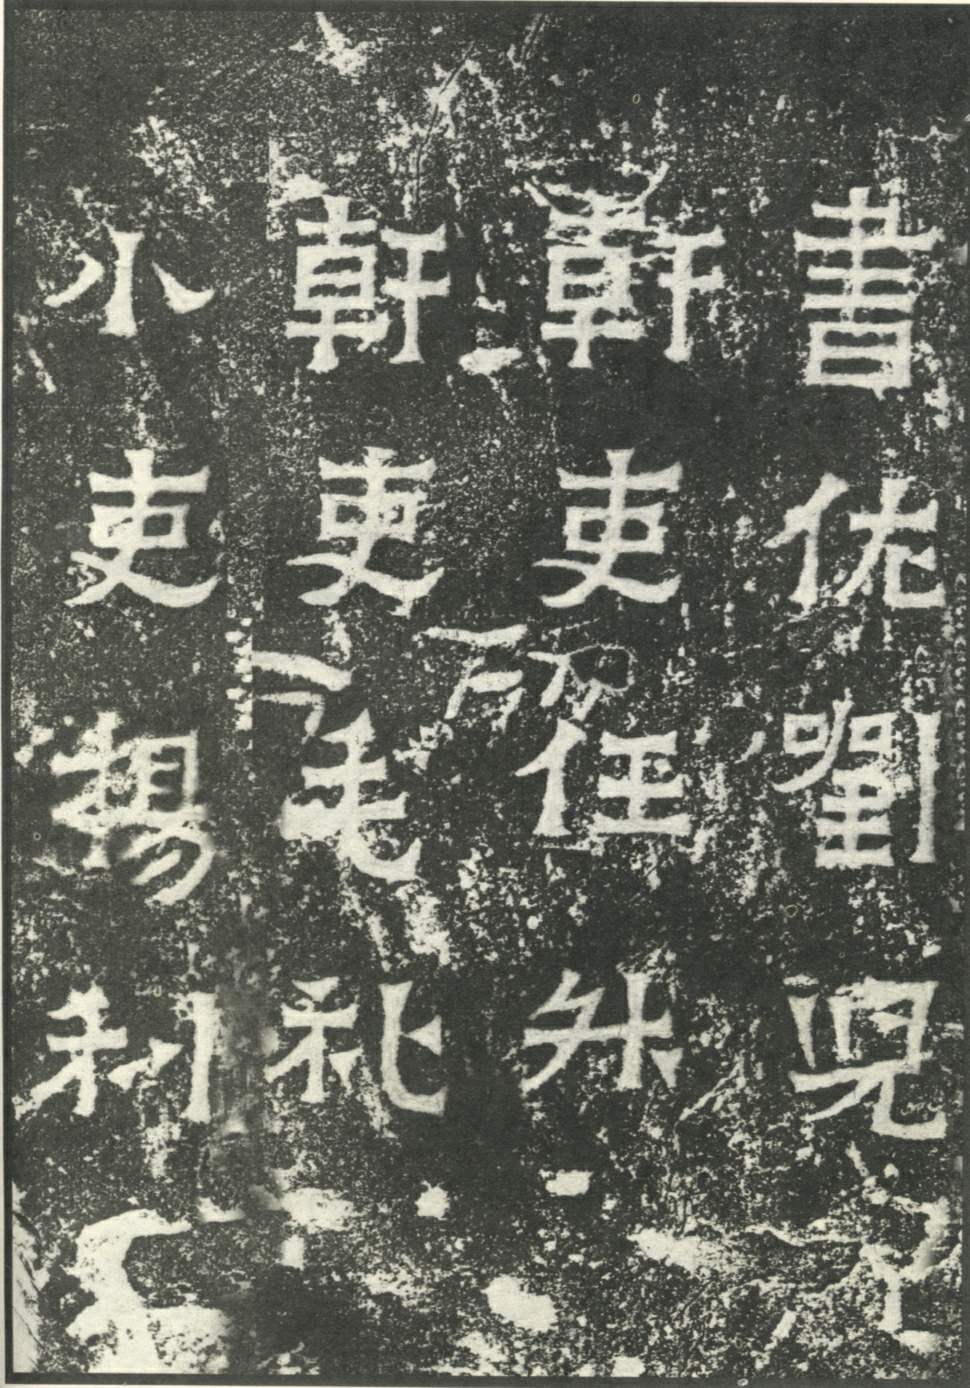 書佐劉兒
幹吏任升
幹吏毛礼
小吏楊利